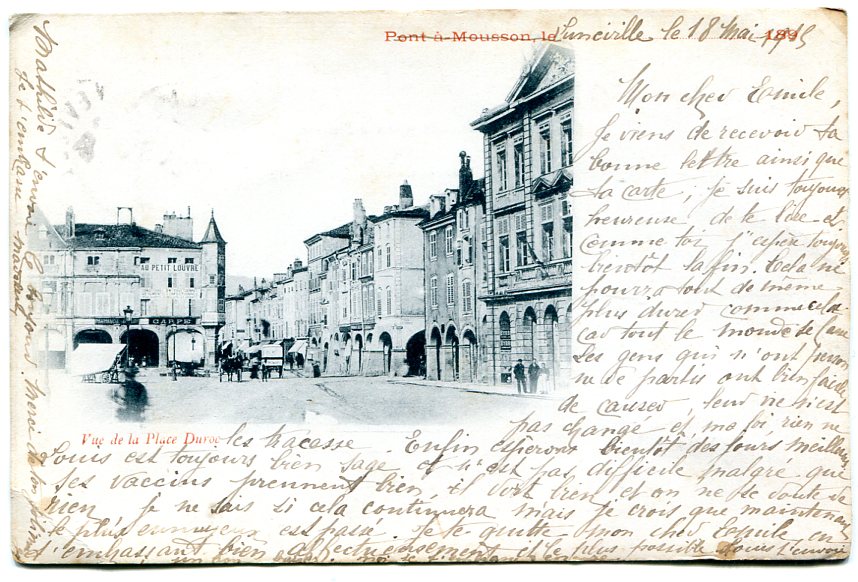 Pont-à-Mousson, le Lunéville le 18 Mai 1915
189
Mon cher Emile,
Je viens de recevoir ta
bonne lettre ainsi que
ta carte, je suis toujours
heureuse de te lire et
comme toi j'espère toujours
bientôt la fin. Cela ne
pourra tout de même
plus durer comme cela
car tout le monde se lasse
Les gens qui n'ont
de partis ont bien facile
de causer, leur vie n'est
pas changé et rien ne
les tracasse. Enfin espérons bientôt des jours meilleurs
Louis est toujours bien sage et n'est pas difficile malgré que
ses vaccins prennent bien, il dort bien et on ne se doute de
rien je ne sais si cela continuera mais je crois que maintenant
le plus ennuyeux est passé. Je te quitte mon cher Emile en
t'embrassant bien affectueusement et le plus possible Louis t'envoie
un bon
AU PETIT LOUVRE
CARPE
Vue de la Place Duroc
Mathilde t'envoie le bonjour. Merci de ton
Je t'embrasse